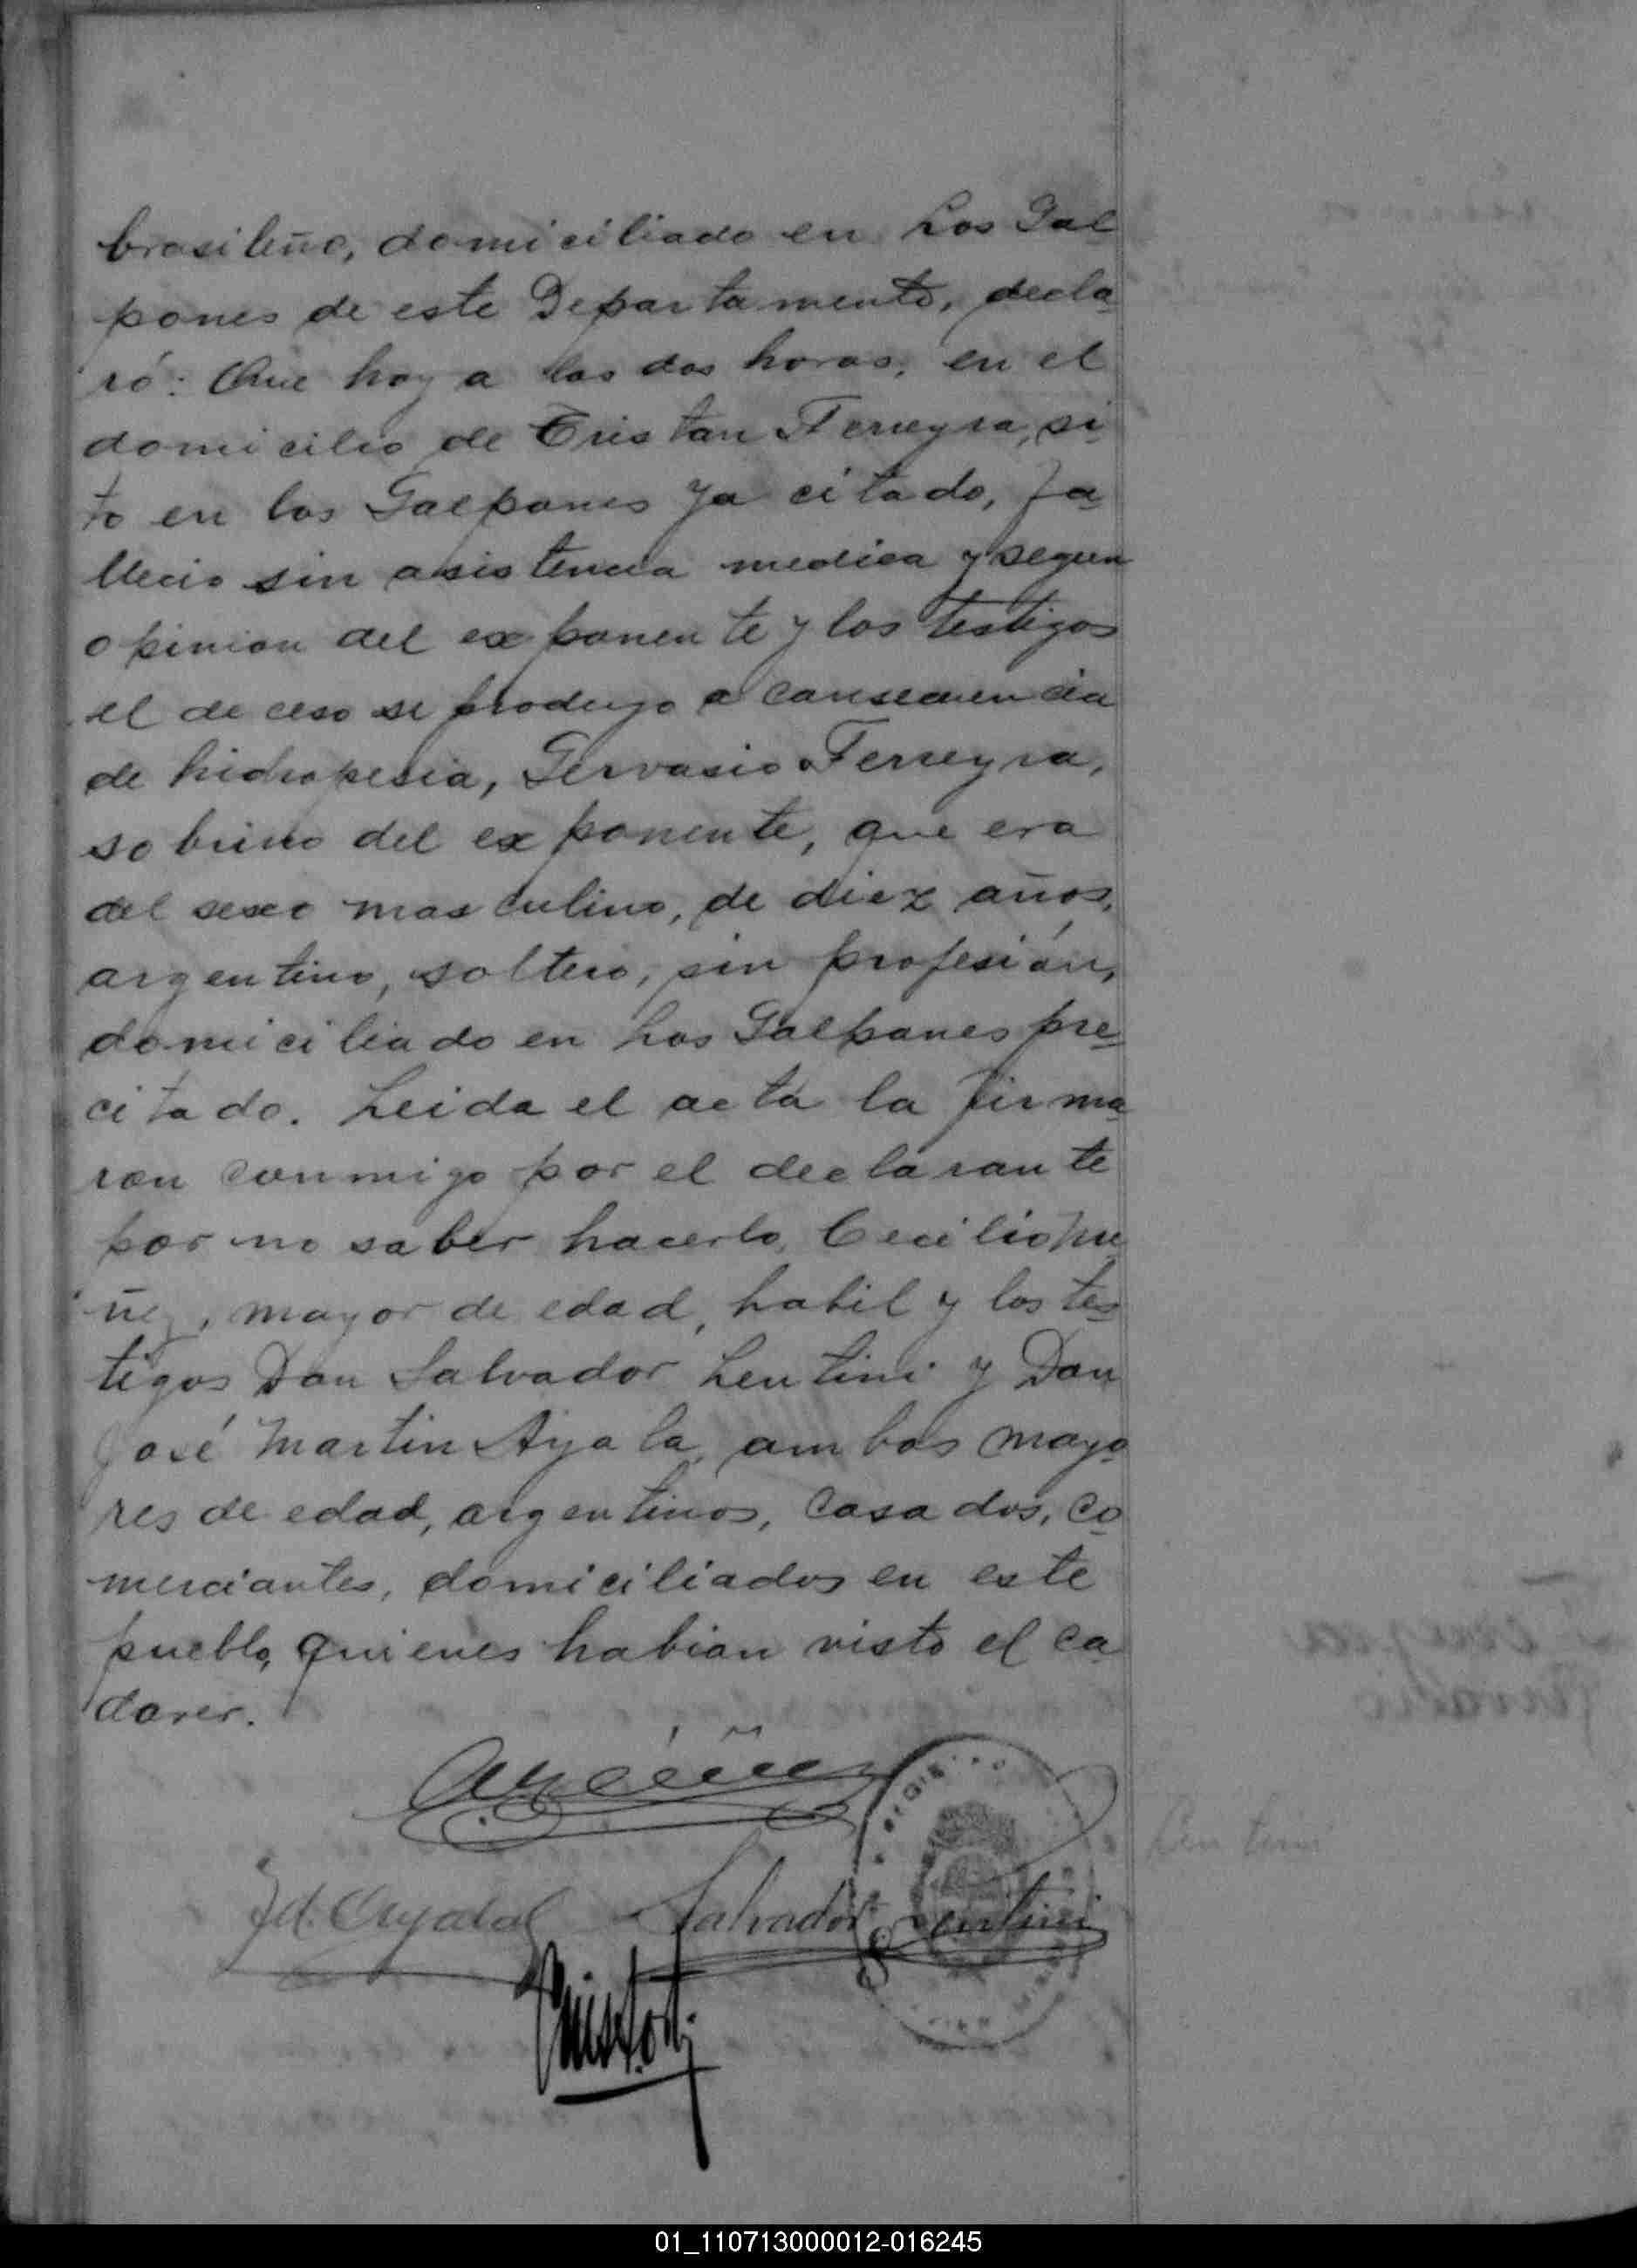 brasileño, domiciliado en Los Gal
pones de este Departamento, decla
ró: Que hoy a las dos horas, en el
domicilio de Tristan Ferreyra, si
to en los Galpones ya citado, fa
llecio sin asistencia medica y segun
opinion del exponente y los testigos
el deceso se produjo a consecuencia
de hidropesia, Gervasio Ferreyra,
sobrino del exponente, que era
del sexo masculino, de diez años,
argentino, soltero, sin profesión,
domiciliado en Los Galpones pre
citado. Leida el acta la firma
ron conmigo por el declarante
por no saber hacerlo, Cecilio Nu
ñez, mayor de edad, habil y los tes
tigos Don Salvador Lentini y Don
José Martin Ayala, ambos mayo
res de edad, argentinos, casados, co
merciantes, domiciliados en este
pueblo, quienes habian visto el ca
daver.
J. M. Ayala Salvador Lentini
01_110713000012-016245